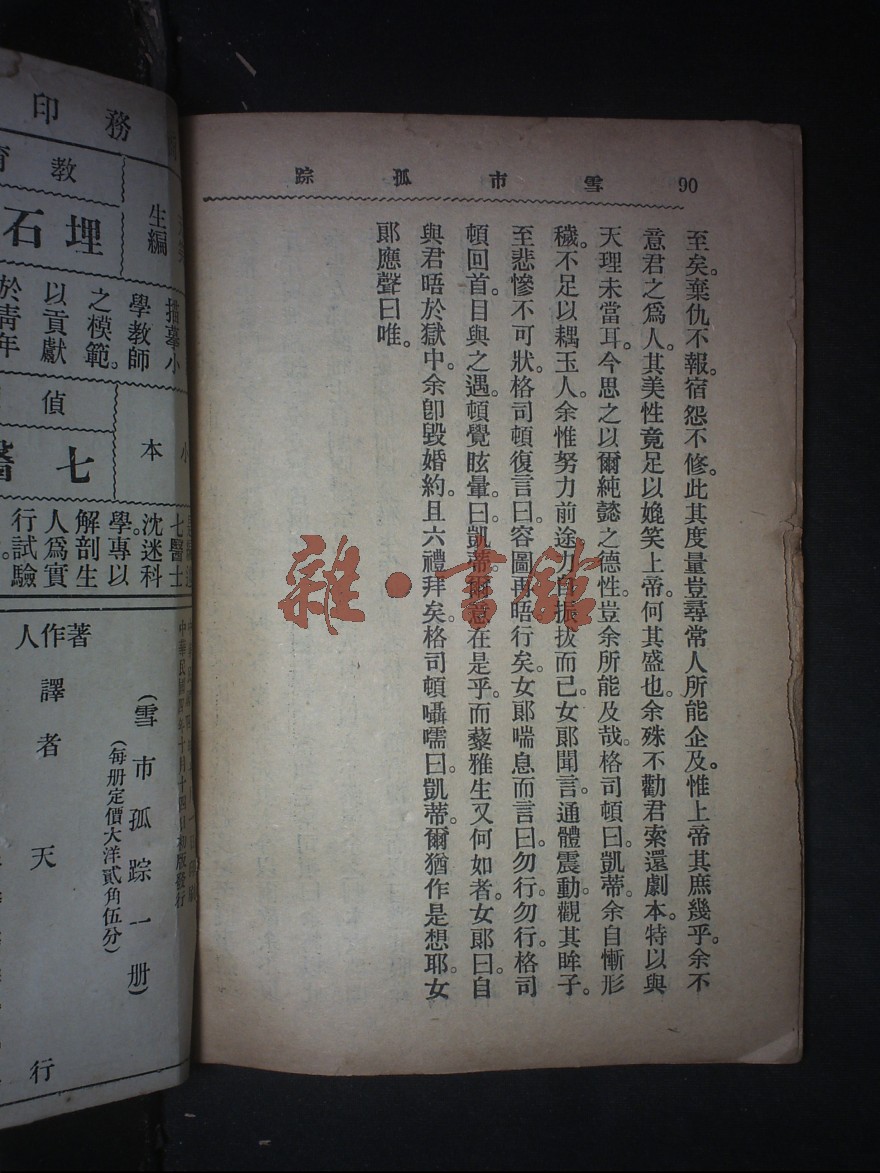 90
雪市孤踪
至矣。棄仇不報。宿怨不修。此其度量豈尋常人所能企及。惟上帝其庶幾乎。余不
意君之爲人。其美性竟足以媲美上帝。何其盛也。余殊不勸君索還劇本。特以與
天理未當耳。今思之以爾純懿之德性。豈余所能及哉。格司頓曰。凱蒂。余自慚形
穢。不足以耦玉人。余惟努力前途。力自振拔而已。女郎聞言。通體震動。觀其眸子。
至悲慘不可狀。格司頓復言曰。容圖再晤。行矣。女郎喘息而言曰。勿行。勿行。格司
頓回首。目與之遇。頓覺眩暈。曰。凱蒂。爾意在是乎。而藜雅生又何如者。女郎曰。自
與君晤於獄中。余卽毀婚約。且六禮拜矣。格司頓囁嚅曰。凱蒂。爾猶作是想耶。女
郎應聲曰唯。
雜·書館
務印
教育
生編
埋石
描摹小
學教師
之模範。
以貢獻
於青年
偵
小本
七醫
七醫士
沈迷科
學。專以
解剖生
人爲實
行試驗
中華民國四年十月十四日初版發行
(雪市孤踪一册)
(每册定價大洋貳角伍分)
著作人
譯者 天
行